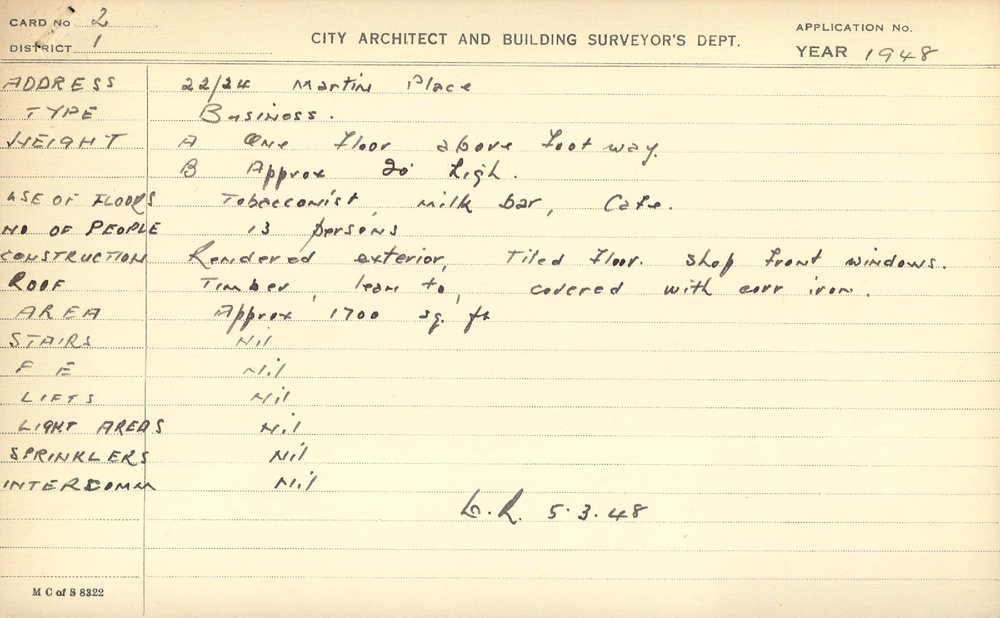 CARD No 2
DISTRICT 1
CITY ARCHITECT AND BUILDING SURVEYOR'S DEPT.
APPLICATION No.
YEAR 1948
ADDRESS 22/24 Martin Place
TYPE Business.
HEIGHT A One floor above foot way.
B Approx 20' high.
USE OF FLOORS Tobacconist, milk bar, Cafe.
NO OF PEOPLE 13 persons
CONSTRUCTION Rendered exterior, Tiled floor. Shop front windows.
ROOF Timber, lean to, covered with corr iron.
AREA Approx 1700 sq. ft
STAIRS Nil
F E Nil
LIFTS Nil
LIGHT AREAS Nil
SPRINKLERS Nil
INTERCOMM Nil
5.3.48
M C of S 8322